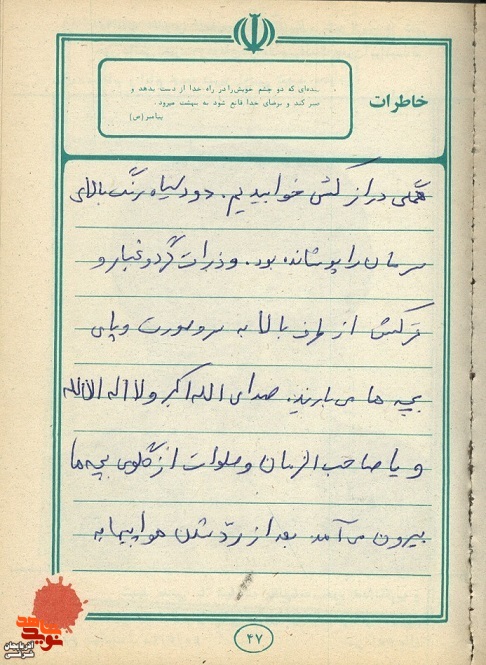 خاطرات
بنده‌ای که دو چشم خویش را در راه خدا از دست بدهد و
صبر کند و برضای خدا قانع شود به بهشت میرود.
پیامبر (ص)
همگی درازکش خوابیدیم. دود سیاه رنگ بالای
سرمان را پوشانده بود. و ذرات گرد و غبار و
ترکش از طرف بالا به سر و صورت و پای
بچه ها می بارید. صدای الله اکبر و لا اله الا الله
و یا صاحب الزمان و صلوات از گلوی بچه ها
بیرون می آمد بعد از رد شدن هواپیما به
۴۷
نوید شاهد
آذربایجان شرقی